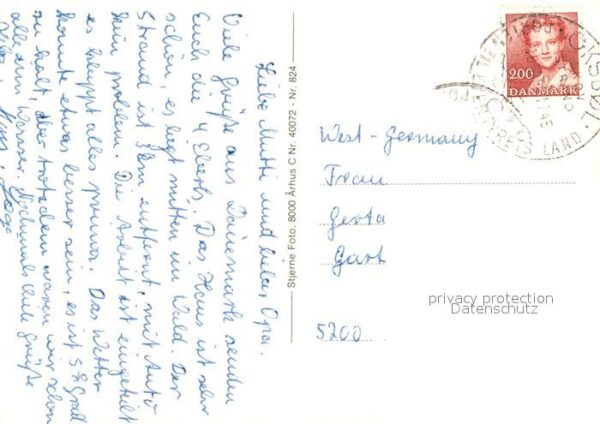 Liebe Mutti und lieber Opa.
Viele Grüße aus Dänemark senden
Euch die 4 Das Haus ist sehr
schön, es liegt mitten im Wald. Der
Strand ist 3 km entfernt, mit Auto
kein problem. Die Arbeit ist eingeteilt
es klappt alles prima. Das Wetter
könnte etwas besser sein, es ist 5-8 Grad
zu kalt, aber trotzdem waren wir schon
alle im Wasser. Nochmals viele Grüße
Stjerne Foto, 8000 Århus C Nr. 40072 - Nr. 824
2.00
DANMARK
OKSBØL
LAND
West-Germany
Frau
Gerta
Gart
5200
privacy protection
Datenschutz